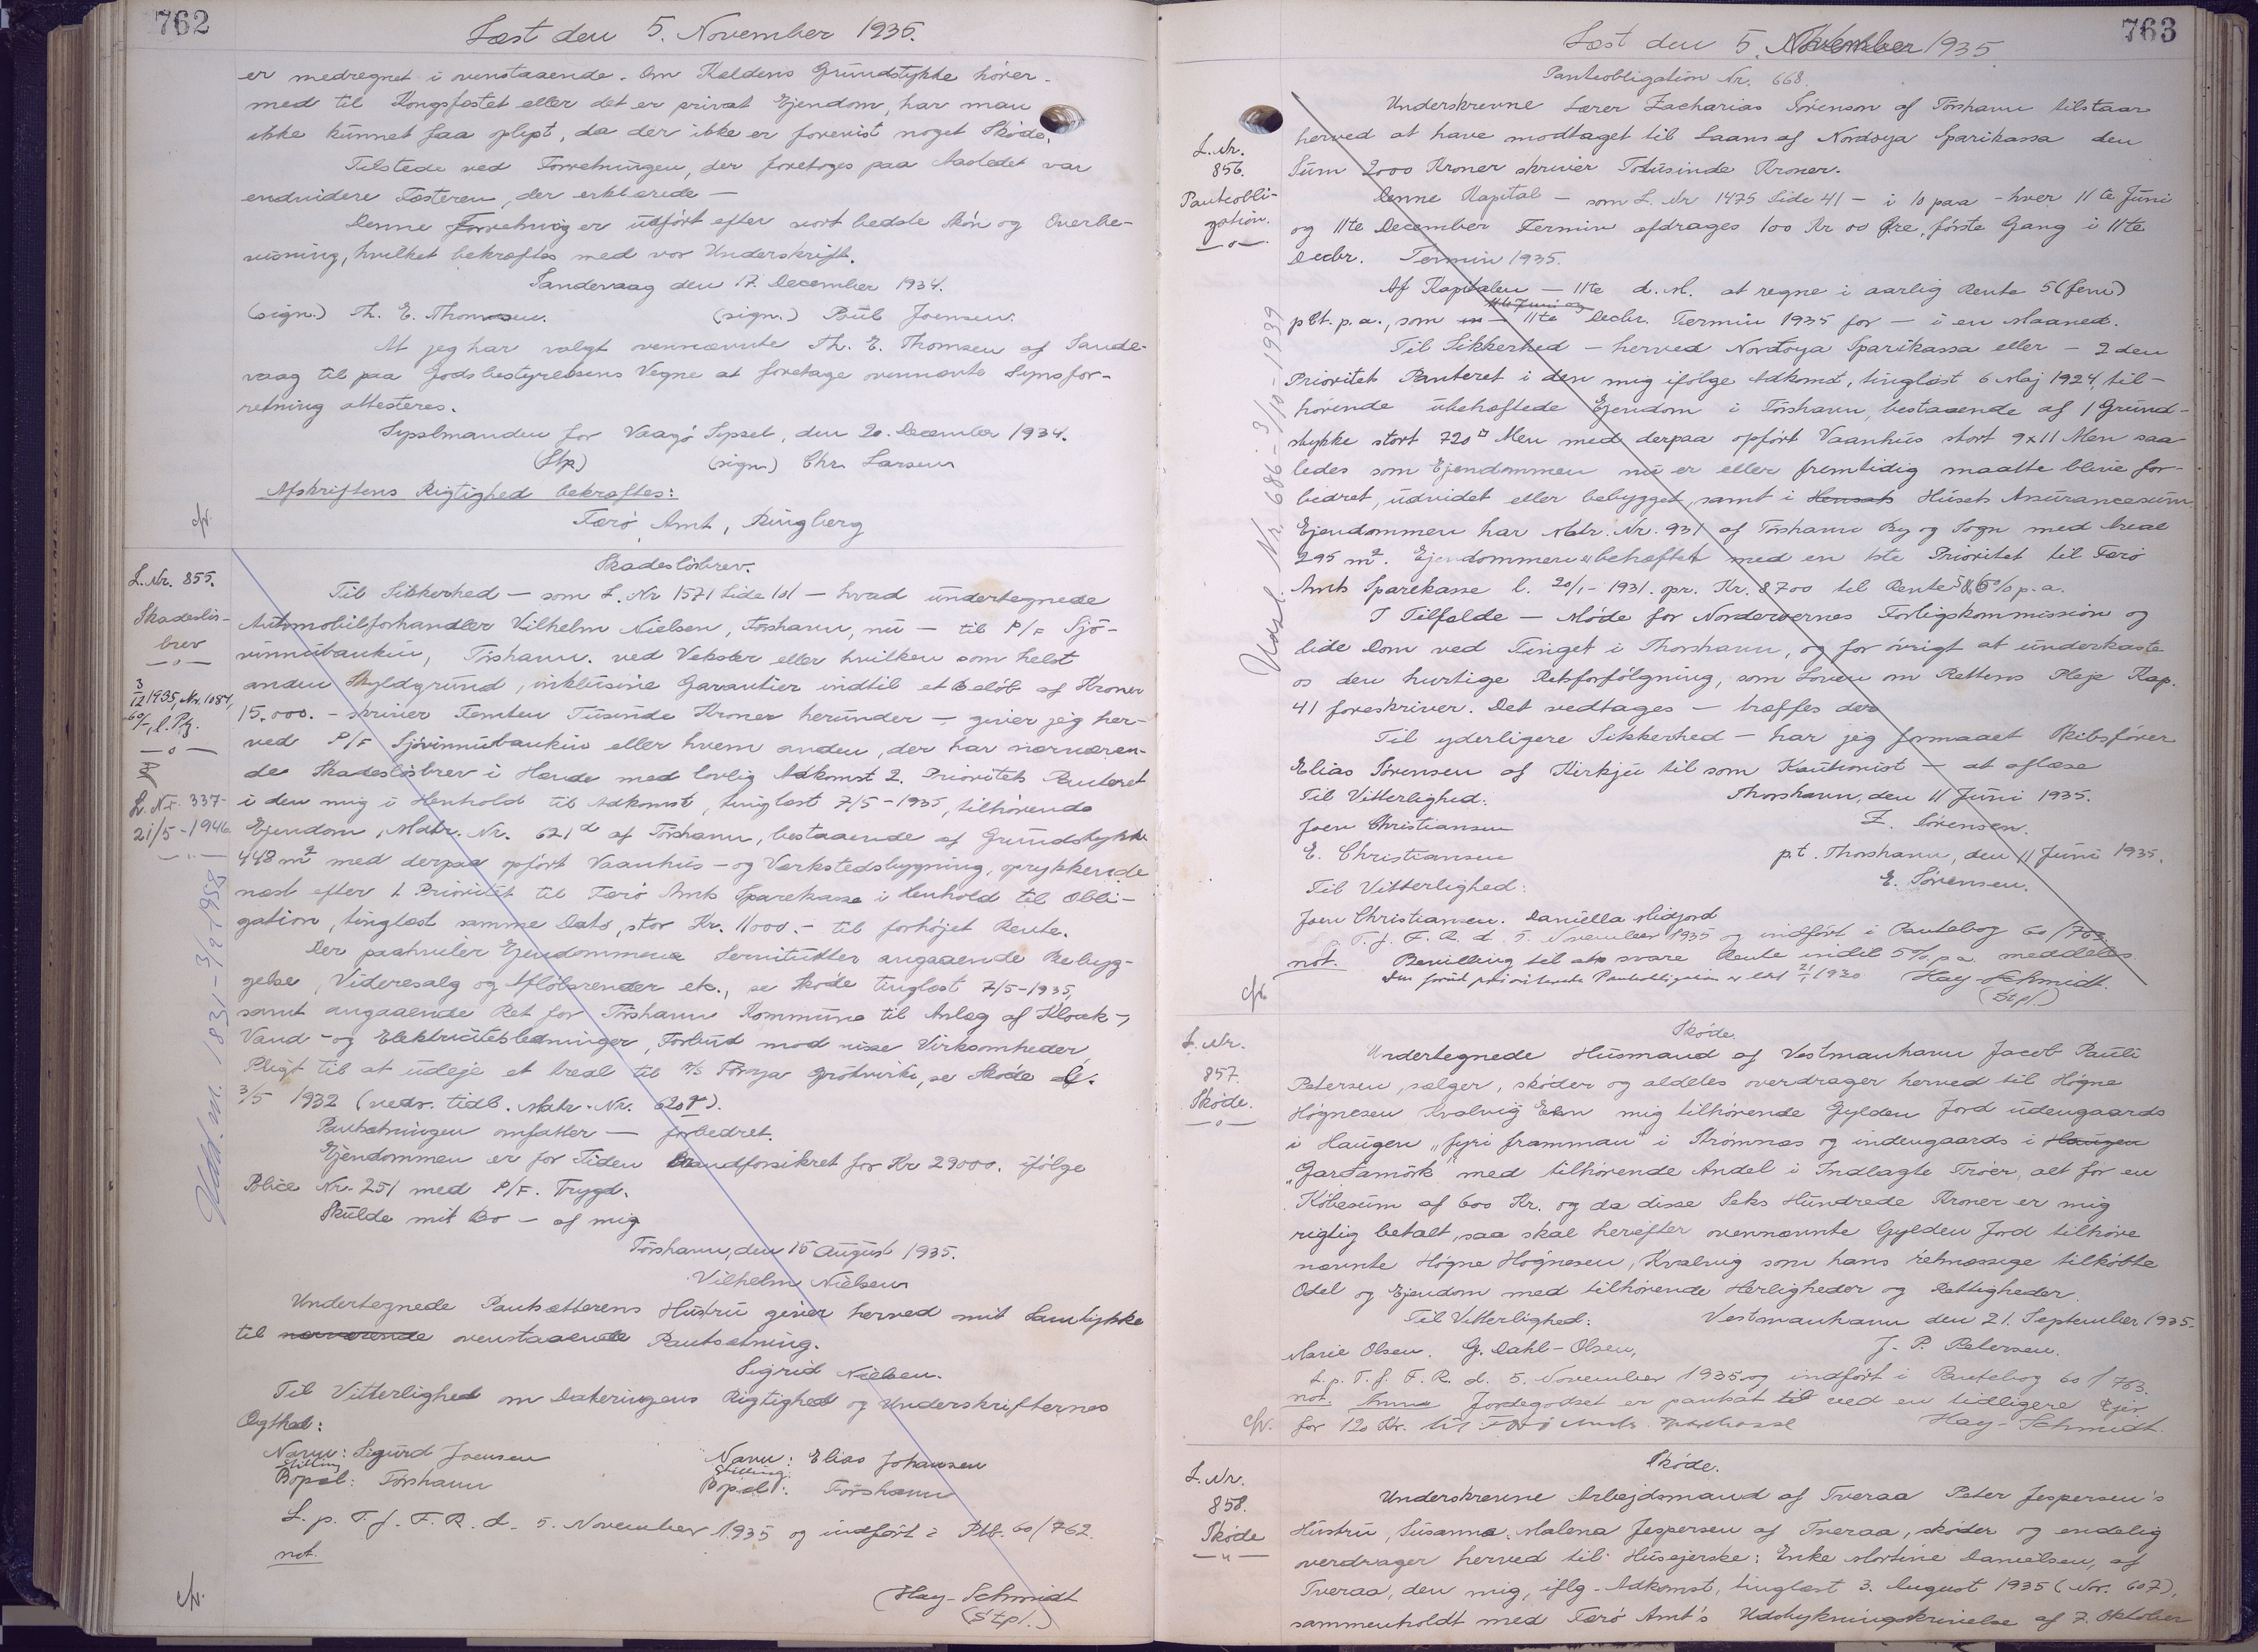 762
Læst den 5. November 1935.
er medregnet i ovenstaaende. Om Kældens Grundstykke hører
med til Kongsfæstet eller det er privat Ejendom, har man
ikke kunnet faa oplyst, da der ikke er forevist noget Skøde.
Tilstede ved Forretningen, der foretoges paa Aastedet var
endvidere Fæsteren, der erklærede —
Denne Forretning er udført efter vort bedste Skøn og Overbe-
visning, hvilket bekræftes med vor Underskrift.
Sandevaag den 17. December 1934.
(sign.) Th. E. Thomsen. (sign.) Poul Joensen.
At jeg har valgt ovennævnte Th. E. Thomsen af Sande-
vaag til paa Jordsbestyrelsens Vegne at foretage ovennævnte Synsfor-
retning attesteres.
Sysselmanden for Vaagø Syssel, den 20. December 1934.
(Stp) (sign.) Chr. Larsen
Afskriftens Rigtighed bekræftes:
Færø Amt, Ringberg
cfr.
L. Nr. 855.
Skadesløs-
brev
—o—
3/12 1935, Nr. 1084,
L. Nr. 337-
21/5-1946
Udsl. m. 1831-3/9-1958
Skadesløsbrev.
Til Sikkerhed — som L. Nr 1571 Side 101 — hvad undertegnede
Automobilforhandler Vilhelm Nielsen, Tórshavn, nu — til P/F Sjó-
vinnubankin, Tórshavn. ved Veksler eller hvilken som helst
anden Skyldgrund, inklusive Garantier indtil et Beløb af Kroner
15.000.- skriver Femten Tusinde Kroner herunder — giver jeg her-
ved P/F Sjóvinnubankin eller hvem anden, der har nærværen-
de Skadesløsbrev i Hænde med lovlig Adkomst 2. Prioritets Panteret
i den mig i Henhold til Adkomst, tinglæst 7/5-1935, tilhørende
Ejendom, Matr. Nr. 621d af Tórshavn, bestaaende af Grundstykke
448 m2 med derpaa opført Vaanhus- og Værkstedsbygning, oprykkende
næst efter 1. Prioritet til Færø Amts Sparekasse i Henhold til Obli-
gation, tinglæst samme Dato, stor Kr. 11000.- til forhøjet Rente.
Der paahviler Ejendommene Servitutter angaaende Bebyg-
gelse, Videresalg og Afløbsrender etc., se Skøde tinglæst 7/5-1935,
samt angaaende Ret for Tórshavn Kommune til Anlæg af Kloak-,
Vand- og Elektricitetsledninger, Forbud mod visse Virksomheder
Pligt til at udeje et Areal til A/S Føroya Grótvirki, se Skøde af.
3/5 1932 (vedr. tidl. Matr. Nr. 620q).
Pantsætningen omfatter — forbedret.
Ejendommen er for Tiden Brandforsikret for Kr 29000. ifølge
Police Nr. 251 med P/F. Trygd.
Skulde mit Bo — af mig
Tórshavn, den 15 August 1935.
Vilhelm Nielsen
Undertegnede Pantsætterens Hustru giver herved mit Samtykke
til nærværende ovenstaaende Pantsætning.
Sigrid Nielsen.
Til Vitterlighed om Dateringens Rigtighed og Underskrifternes
Ægthed:
Navn: Sigurd Joensen Navn: Elias Johansen
Stilling Stilling:
Bopæl: Tórshavn Bopæl: Tórshavn
L. p. T. f. F. R. d. 5. November 1935 og indført i Ptb. 60/762.
not.
cfr.
Hay-Schmidt
(Stpl.)
763
Læst den 5. November 1935
L. Nr.
856.
Panteobli-
gation.
—o—
Udsl. Nr. 686-3/10-1939
Panteobligation Nr. 668.
Underskrevne Lærer Zacharias Sørenson af Tórshavn tilstaar
herved at have modtaget til Laans af Nordoya Sparikassa den
Sum 2000 Kroner skriver Totusinde Kroner.
Denne Kapital — som L. Nr 1475 Side 41 — i 10 paa — hver 11te Juni
og 11te December Termin afdrages 100 Kr 00 Øre, første Gang i 11te
Decbr. Termin 1935.
Af Kapitalen — 11te d. M. at regne i aarlig Rente 5 (fem)
11te Juni og
pCt. p. a., som — 11te Decbr. Termin 1935 for — i en Maaned.
Til Sikkerhed — herved Nordoya Sparikassa eller — 2den
Prioritets Panteret i den mig ifølge Adkomst, tinglæst 6 Maj 1924, til-
hørende ubehæftede Ejendom i Tórshavn, bestaaende af 1 Grund-
stykke stort 720 □ Alen med derpaa opført Vaanhus stort 9x11 Alen saa-
ledes som Ejendommen nu er eller fremtidig maatte blive for-
bedret, udvidet eller bebygget, samt i Husets Assurancesum.
Ejendommen har Matr. Nr. 931 af Tórshavn By og Sogn med Areal
295 m2. Ejendommen er behæftet med en 1ste Prioritet til Færø
Amts Sparekasse l. 20/1-1931. opr. Kr. 8700 til Rente 5 à 6% p. a.
I Tilfælde — Møde for Nordstrømø Forligskommission og
lide Dom ved Tinget i Thorshavn, og for øvrigt at underkaste
os den hurtige Retsforfølgning, som Loven om Rettens Pleje Kap.
41 foreskriver. Det vedtages — træffes der
Til yderligere Sikkerhed — har jeg formaaet Skibsfører
Elias Sørensen af Kirkju til som Kautionist — at aflæse
Til Vitterlighed: Thorshavn, den 11 Juni 1935.
Joen Christiansen Z. Sørensen.
E. Christiansen p.t. Thorshavn, den 11 Juni 1935.
Til Vitterlighed: E. Sørensen.
Joen Christiansen. Daniella Midjord
T. f. F. R. d. 5. November 1935 og indført i Pantebog 60/763
not. Bevilling til at svare Rente indtil 5% p.a. meddeles.
Den forud prioriterede Panteobligation er 1930 Hay-Schmidt.
(Stpl.)
cfr.
L. Nr.
857.
Skøde.
—o—
Skøde.
Undertegnede Husmand af Vestmanhavn Jacob Pauli
Petersen, sælger, skøder og aldeles overdrager herved til Høgne
Høgnesen Kvalvig Een mig tilhørende Gylden Jord udengaards
i Haugen „fyri framman“ i Strømnæs og indengaards i Haugen
„Gardamørk“ med tilhørende Andel i Indlagte Trøer, alt for en
Købesum af 600 Kr. og da disse Seks Hundrede Kroner er mig
rigtig betalt, saa skal herefter ovennævnte Gylden Jord tilhøre
nævnte Høgne Høgnesen, Kvalvig som hans retmæssige tilkøbte
Odel og Ejendom med tilhørende Herligheder og Rettigheder.
Til Vitterlighed: Vestmanhavn den 21. September 1935.
Marie Olsen. G. Dahl-Olsen, J. P. Petersen.
L. p. T. f. F. R. d. 5. November 1935 og indført i Pantebog 60/763.
not. Jordegodset er pantsat til ved en tidligere Ejer
for 120 Kr. til Færø Amts Sparekasse Hay-Schmidt.
cfr.
L. Nr.
858.
Skøde
—"—
Skøde.
Underskrevne Arbejdsmand af Tveraa Peter Jespersen's
Hustru, Susanna Malena Jespersen af Tveraa, skøder og endelig
overdrager herved til Husejerske: Enke Mortine Danielsen, af
Tveraa, den mig, iflg. Adkomst, tinglæst 3. August 1935 (Nr. 607),
sammenholdt med Færø Amt's Udstykningsskrivelse af 7. Oktober